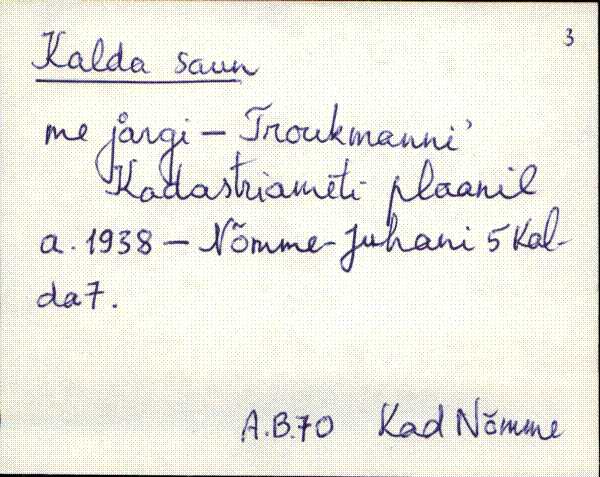 3
Kalda saun
me järgi – Troukmanni'
Kadastriameti plaanil
a. 1938 – Nõmme-Juhani 5 Kal-
da 7.
A.B.70 Kad Nõmme